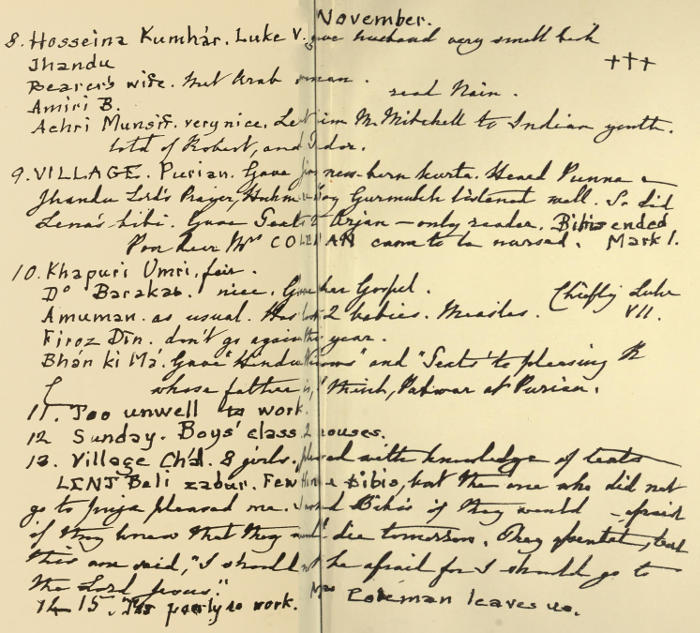 November.
8. Hosseina Kumhár. Luke V. gave husband very small book
+++
Jhandu
Bearer's wife. Met Arab woman. read Nain.
Amiri B.
Achri Munsif. very nice. Lent him M. Mitchell to Indian youth.
told of Robert, and
9. VILLAGE. Purian. Gave for new-born kurta. Heard Punna &
Jhandu Lord's Prayer, Gurmukh listened well. So did
Lena's bibi. Gave Texts 2 Arjan — only reader. Bibis ended
Poor dear Mrs COLEMAN came to be nursed. Mark I.
10. Khapuri Umri, fair.
Do Barakat. nice. Gave her Gospel. Chiefly Luke
Amuman. as usual. Has lost 2 babies. Measles. VII.
Firoz Din. don't go again this year.
Bhán ki Má. Gave "Hindu " and "Texts to pleasing
whose father is, I think, Patwar at Purian.
11. Too unwell to work.
12 Sunday. Boys' class 2 houses.
13. Village Ch'd. 8 girls. pleased with knowledge of texts
Bali zabur. Few Hindu Bibis, but the one who did not
go to puja pleased me. I asked Bibis if they would afraid
if they knew that they must die tomorrow. They but
this one said, "I should not be afraid for I should go to
the Lord Jesus."
14 15. Too poorly to work. Mrs Coleman leaves us.